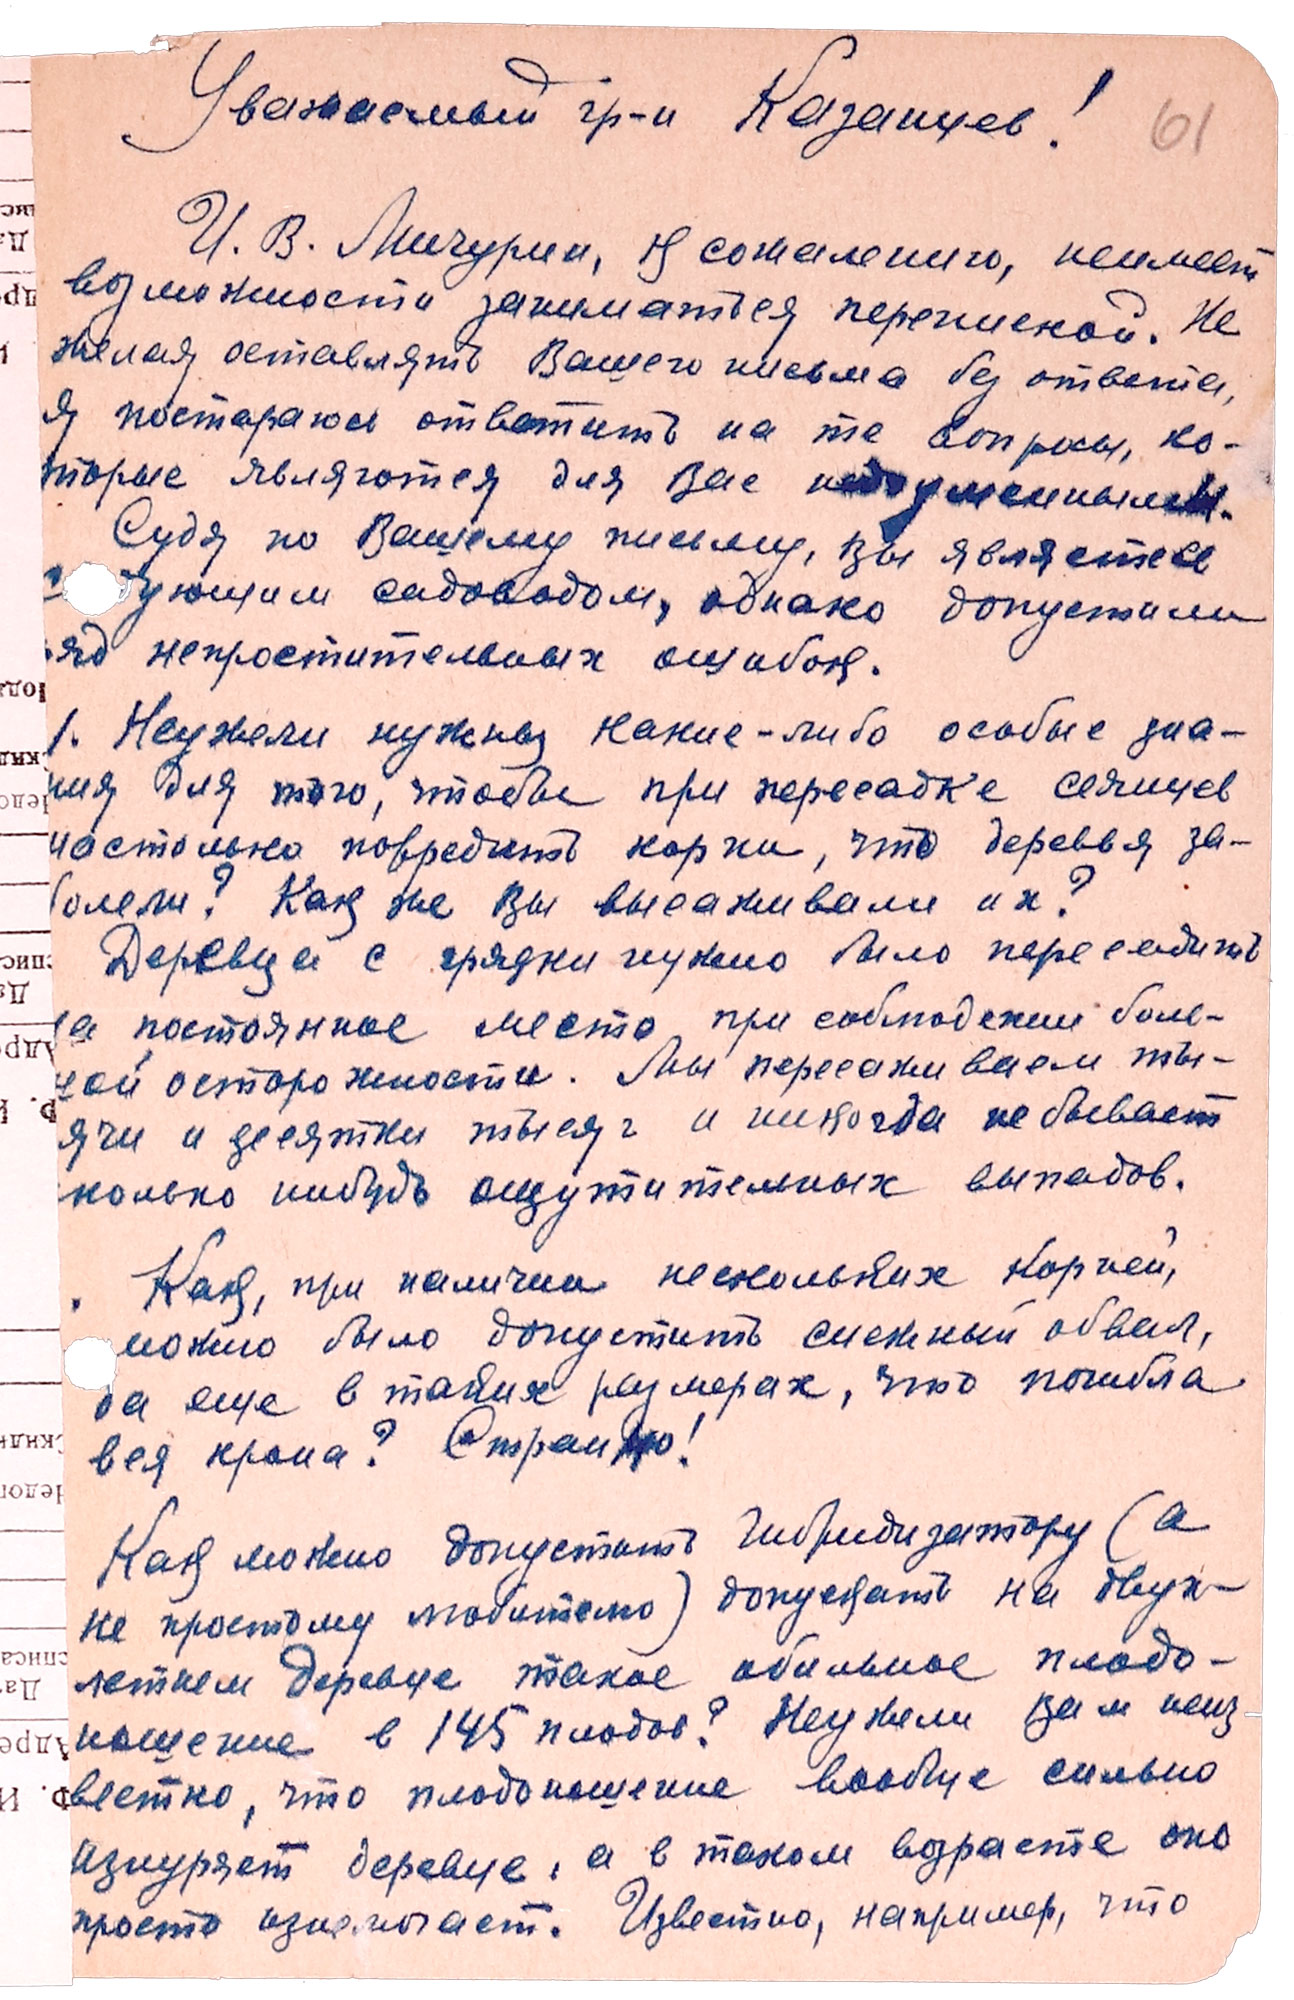 Уважаемый гр-н Казанцев!
61
И. В. Мичурин, к сожалению, неимеет
возможности заниматься перепиской. Не
желая оставлять Вашего письма без ответа,
я постараюсь ответить на те вопросы, ко-
торые являются для Вас недоуменными.
Судя по Вашему письму, Вы являетесь
дующим садоводом, однако допустили
ряд непростительных ошибок.
1. Неужели нужны какие-либо особые зна-
ния для того, чтобы при пересадке сеянцев
настолько повредить корни, что деревья за-
болели? Как же Вы высаживали их?
Деревца с грядки нужно было пересадить
на постоянное место при соблюдении боль-
шой осторожности. Мы пересаживаем ты-
сячи и десятки тысяч и никогда не бывает
сколько нибудь ощутительных выпадов.
. Как, при наличии нескольких корней,
можно было допустить снежный обвал,
да еще в таких размерах, что погибла
вся крона? Странно!
Как можно допустить гибридизатору (а
не простому любителю) допускать на двух-
летнем деревце такое обильное плодо-
ношение в 145 плодов? Неужели Вам неиз
вестно, что плодоношение вообще сильно
изнуряет деревце, а в таком возрасте оно
просто изнемогает. Известно, например, что